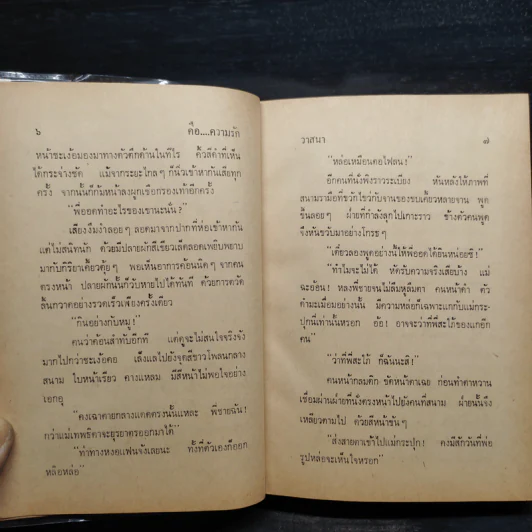 ๖ คือ....ความรัก
หน้าชะเง้อมองมาทางตัวตึกด้านในทีไร คิ้วสีดำที่เห็น
ได้กระจ่างชัด แม้จากระยะไกลๆ ก็นิ่วเข้าหากันเสียทุก
ครั้ง จากนั้นก็ก้มหน้าลงผูกเชือกรองเท้าอีกครั้ง
"พี่ออดทำอะไรของเขานะนั่น?"
เสียงงึมงำลอยๆ ลอดมาจากปากที่ห่อเข้าหากัน
แต่ไม่สนิทนัก ด้วยมีปลายผักสีเขียวเล็ดลอดเพยิบพยาบ
มากับกิริยาเคี้ยวตุ้ยๆ พอเห็นอาการค้อนนิดๆ จากคน
ตรงหน้า ปลายผักนั้นก็วับหายไปได้ทันที ด้วยการตวัด
ลิ้นกวาดอย่างรวดเร็วเพียงครั้งเดียว
"กินอย่างกับหมู!"
คนว่าค้อนสำทับอีกที แต่ดูจะไม่สนใจจริงจัง
มากไปกว่าชะเง้อคอ เล็งแลไปยังจุดสีขาวโพลนกลาง
สนาม ใบหน้าเรียว คางแหลม มีสีหน้าไม่พอใจอย่าง
เอกอุ
"คงเฉาตายกลางแดดตรงนั้นแหละ พี่ชายฉัน!
กว่าแม่เทพธิดาจะยุรยาตรออกมาได้"
"ทำทางหงอแฟนจังเลยนะ ทั้งที่ตัวเองก็ออก
หล๊อหล่อ"
วาสนา ๗
"หล่อเหมือนตอไฟลน!"
อีกคนที่นั่งพิงราวระเบียง หันหลังให้ภาพที่
สนามรามือที่ขวักไขว่กับจานของขบเคี้ยวหลายจาน พูด
ขึ้นลอยๆ ฝ่ายที่กำลังลุกไปเกาะราว ข้างตัวคนพูด
จึงหันขวับมาอย่างโกรธๆ
"เดี๋ยวลองพูดอย่างนี้ให้พี่ออดได้ยินหน่อยซิ!"
"ทำไมจะไม่ได้ ให้ตีรับความจริงเสียบ้าง แม่
ฉะอ้อน! หลงพี่ชายจนไม่ลืมหูลืมตา คนหน้าดำ ตัว
ดำมะเมื่อมอย่างนั้น มีความหล่อก็เฉพาะแกกับแม่กระ-
ปุกนี่เท่านั้นหรอก อ้อ! อาจจะว่าที่พี่สะใภ้ของแกอีก
คน"
"ว่าที่พี่สะใภ้ ก็ฉันน่ะสิ!"
คนหน้ากลมดิก ขัดหน้าตาเฉย ก่อนทำตาหวาน
เชื่อมผ่านฝ่ายที่นั่งตรงหน้าไปยังคนที่สนาม ฝ่ายนั้นจึง
เหลียวตามไป ด้วยสีหน้าขันๆ
"ส่งสายตาเข้าไปแม่กระปุก! คงมีสักวันที่พ่อ
รูปหล่อจะเห็นใจหรอก"